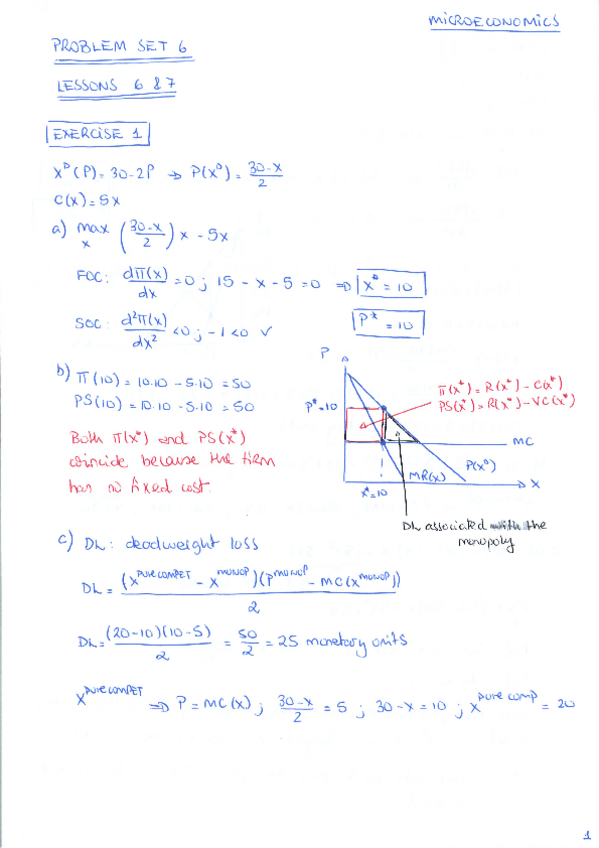 MICROECONOMICS
PROBLEM SET 6
LESSONS 6 & 7
EXERCISE 1
X^D(P) = 30-2P → P(X^D) = (30-X)/2
C(X) = 5X
a) max_x ((30-X)/2) X - 5X
FOC: dπ(x)/dx = 0 ; 15 - x - 5 = 0 ⇒ X* = 10
SOC: d²π(x)/dx² < 0 ; -1 < 0 ✓ P* = 10
b) π(10) = 10·10 - 5·10 = 50
PS(10) = 10·10 - 5·10 = 50
Both π(x*) and PS(x*)
coincide because the firm
has no fixed cost.
P
π(x*) = R(x*) - C(x*)
PS(x*) = R(x*) - VC(x*)
P*=10
MC
MR(x)
P(X^D)
X
X*=10
DL associated with the
monopoly
c) DL: deadweight loss
DL = (X^PURE COMPET - X^MONOP)(P^MONOP - MC(X^MONOP)) / 2
DL = (20-10)(10-5)/2 = 50/2 = 25 monetary units
X^PURE COMPET ⇒ P = MC(X) ; (30-X)/2 = 5 ; 30-X = 10 ; X^PURE COMP = 20
1